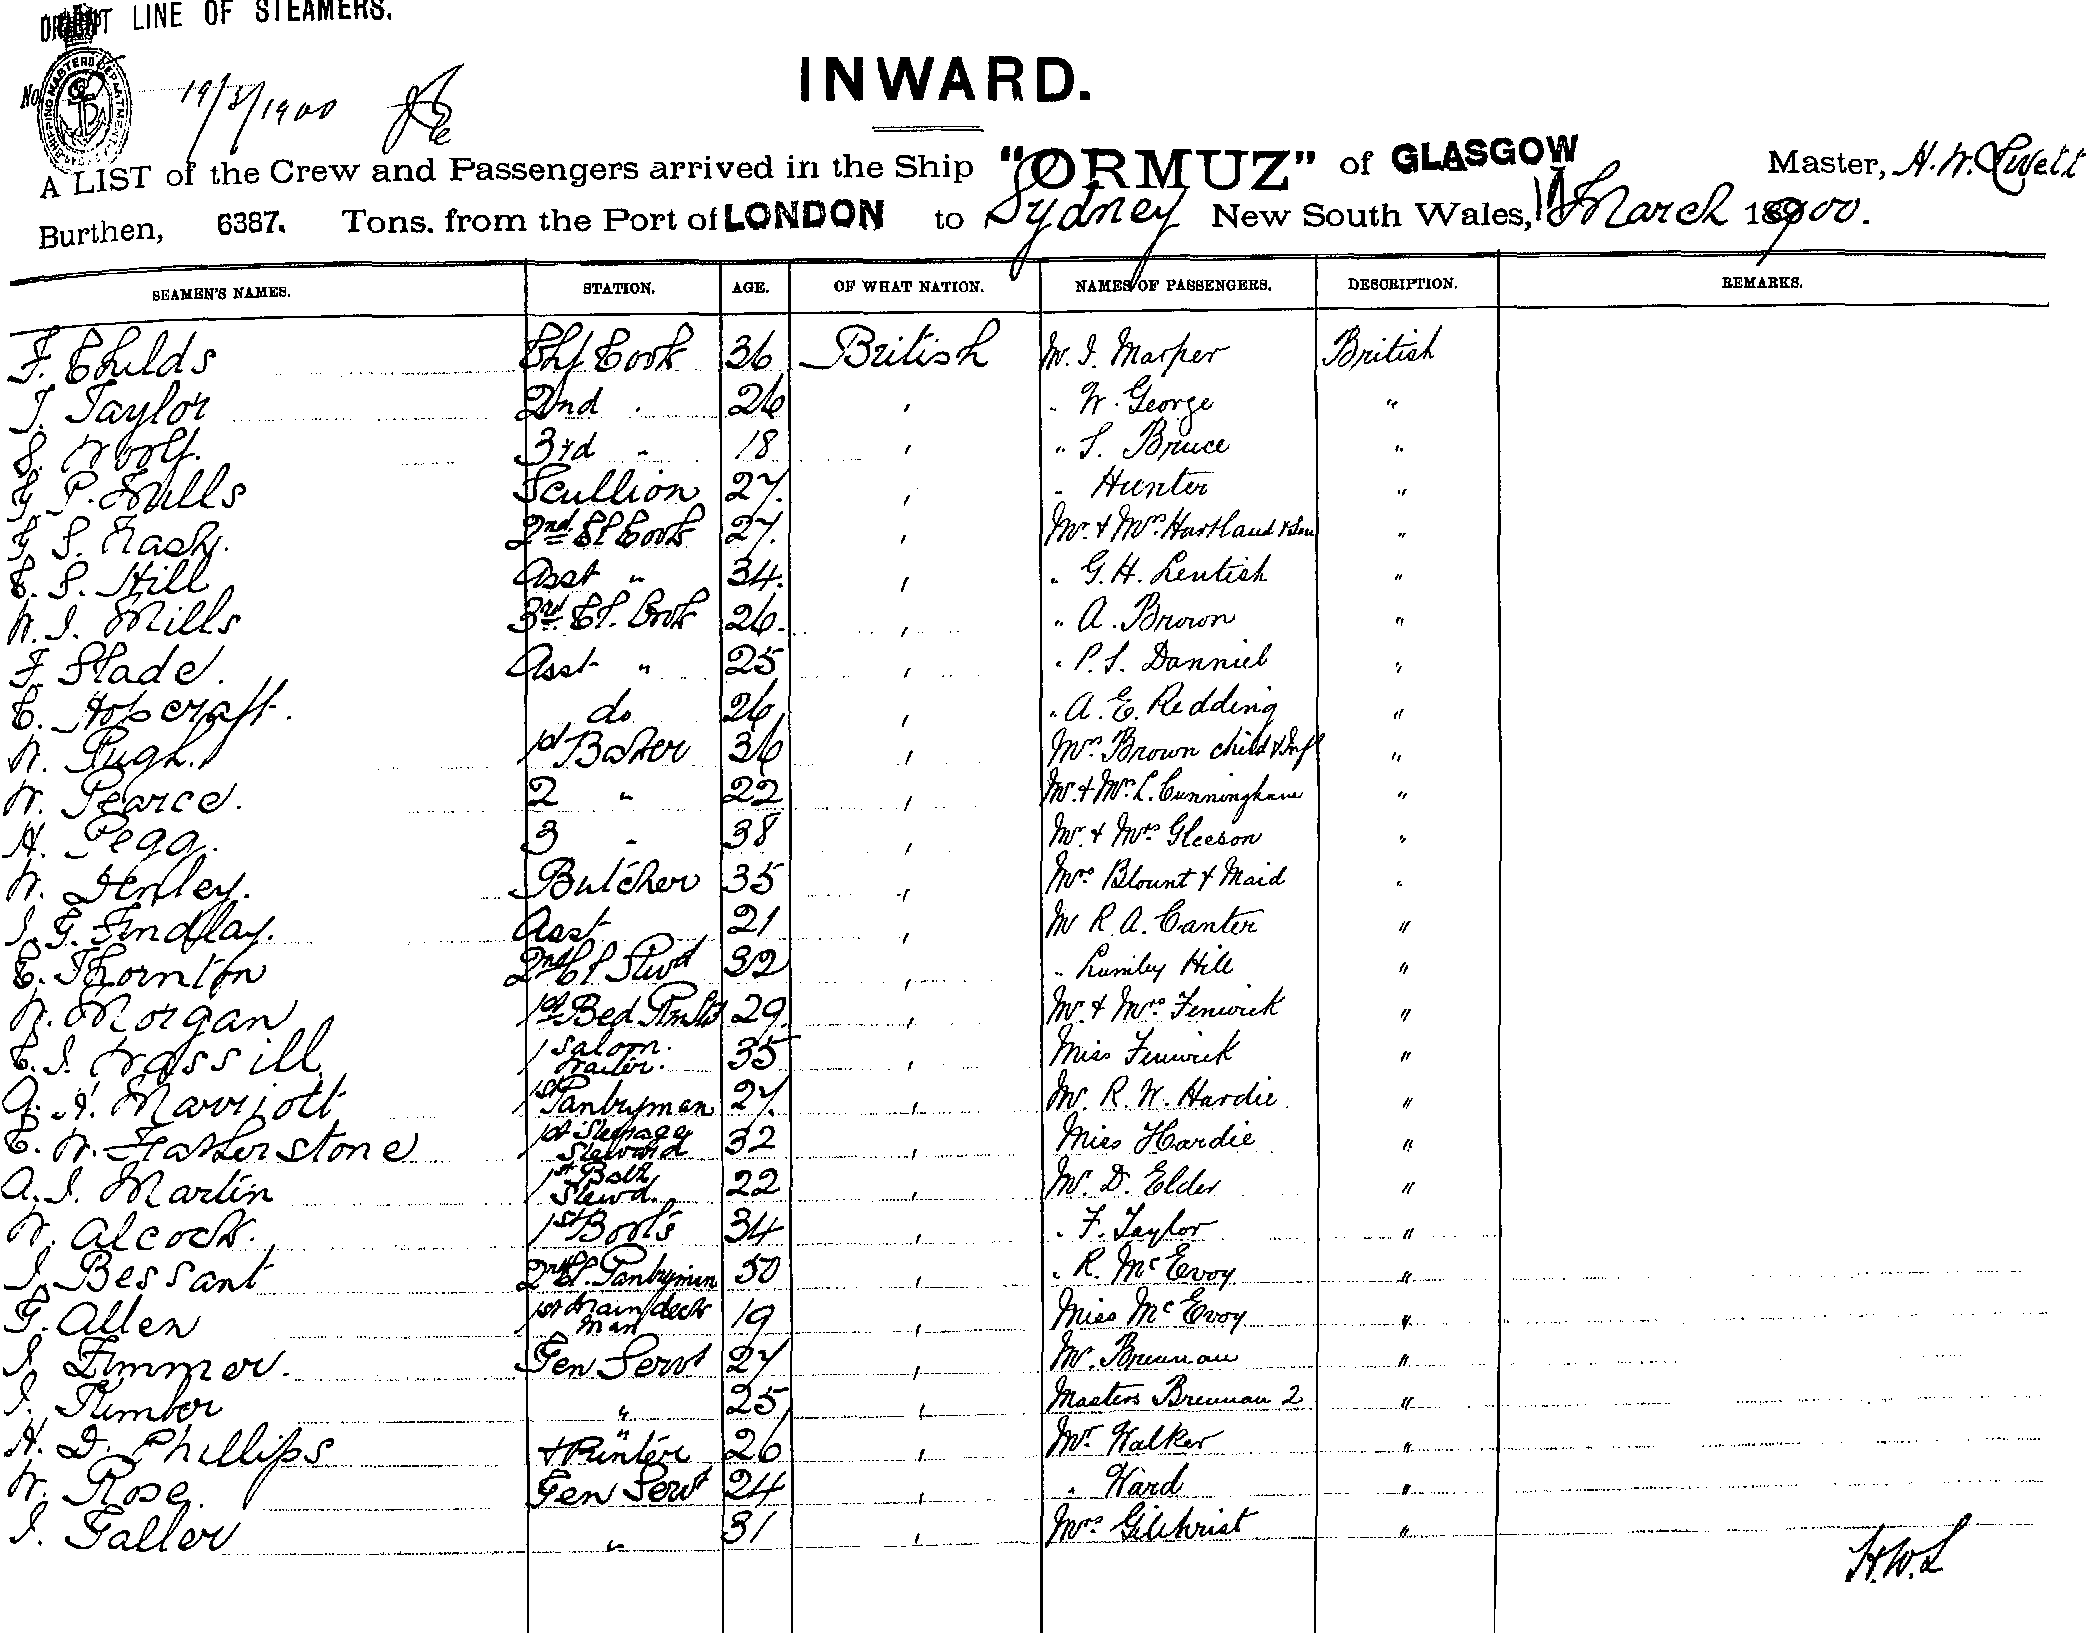 ORIENT LINE OF STEAMERS.
No 19/3/1900
INWARD.
A LIST of the Crew and Passengers arrived in the Ship "ORMUZ" of GLASGOW Master, H. W.
Burthen, 6387. Tons. from the Port of LONDON to Sydney New South Wales, March 1900.
SEAMEN'S NAMES. STATION. AGE. OF WHAT NATION. NAMES OF PASSENGERS. DESCRIPTION. REMARKS.
F. Childs Chf Cook 36 British Mr. J. Harper British
J. Taylor 2nd " 26 " " W. George "
S. Woolf. 3rd " 18 " " S. Bruce "
G P. Mills Scullion 27. " " Hunter "
G S. Nash. 2nd Cl Cook 27. " Mr. & Mrs. Hartland & Son "
C. S. Hill Asst " 34. " " G. H. "
W. J. Mills 3rd Cl. Cook 26. " " A. Brown "
F. Slade. Asst " 25 " " P. S. Danniel "
C. Hopcraft. do 26 " " A. E. Redding "
W. Pugh. 1st Baker 36 " Mrs. Brown child & Inft "
W. Pearce. 2 " 22 " Mr. & Mrs. L. Cunningham "
H. Pegg. 3 " 38 " Mr. & Mrs. Gleeson "
W. Henley. Butcher 35 " Mrs. Blount & Maid "
J. G. Findlay. Asst 21 " Mr R. A. Canter "
C. Thornton 2nd Cl Stwd 32 " " Lumley Hill "
W. Morgan 1st Bed 29. " Mr. & Mrs. Fenwick "
C. J. Wassill 1 Saloon Waiter. 35 " Miss Fenwick "
A. H. Marriott 1st Pantryman 27. " Mr. R. W. Hardie "
C. W. Featherstone 1st Steerage Steward 32 " Miss Hardie "
A. J. Martin 1st Bath Stewd. 22 " Mr. D. Elder "
W. Alcock. 1st Boots 34 " " F. Taylor "
J. Bessant 2nd Cl. Pantryman 50 " " R. McEvoy "
G. Allen 1st Main deck man 19 " Miss McEvoy "
J. Zimmer. Gen Servt 27 " Mr. Brennan "
J. Kimber " 25 " Masters Brennan 2 "
H. D. Phillips " & Printer 26 " Mr. Walker "
W. Rose. Gen Servt 24 " " Ward "
J. Galler " 31 " Mrs. Gilchrist "
H.W.L